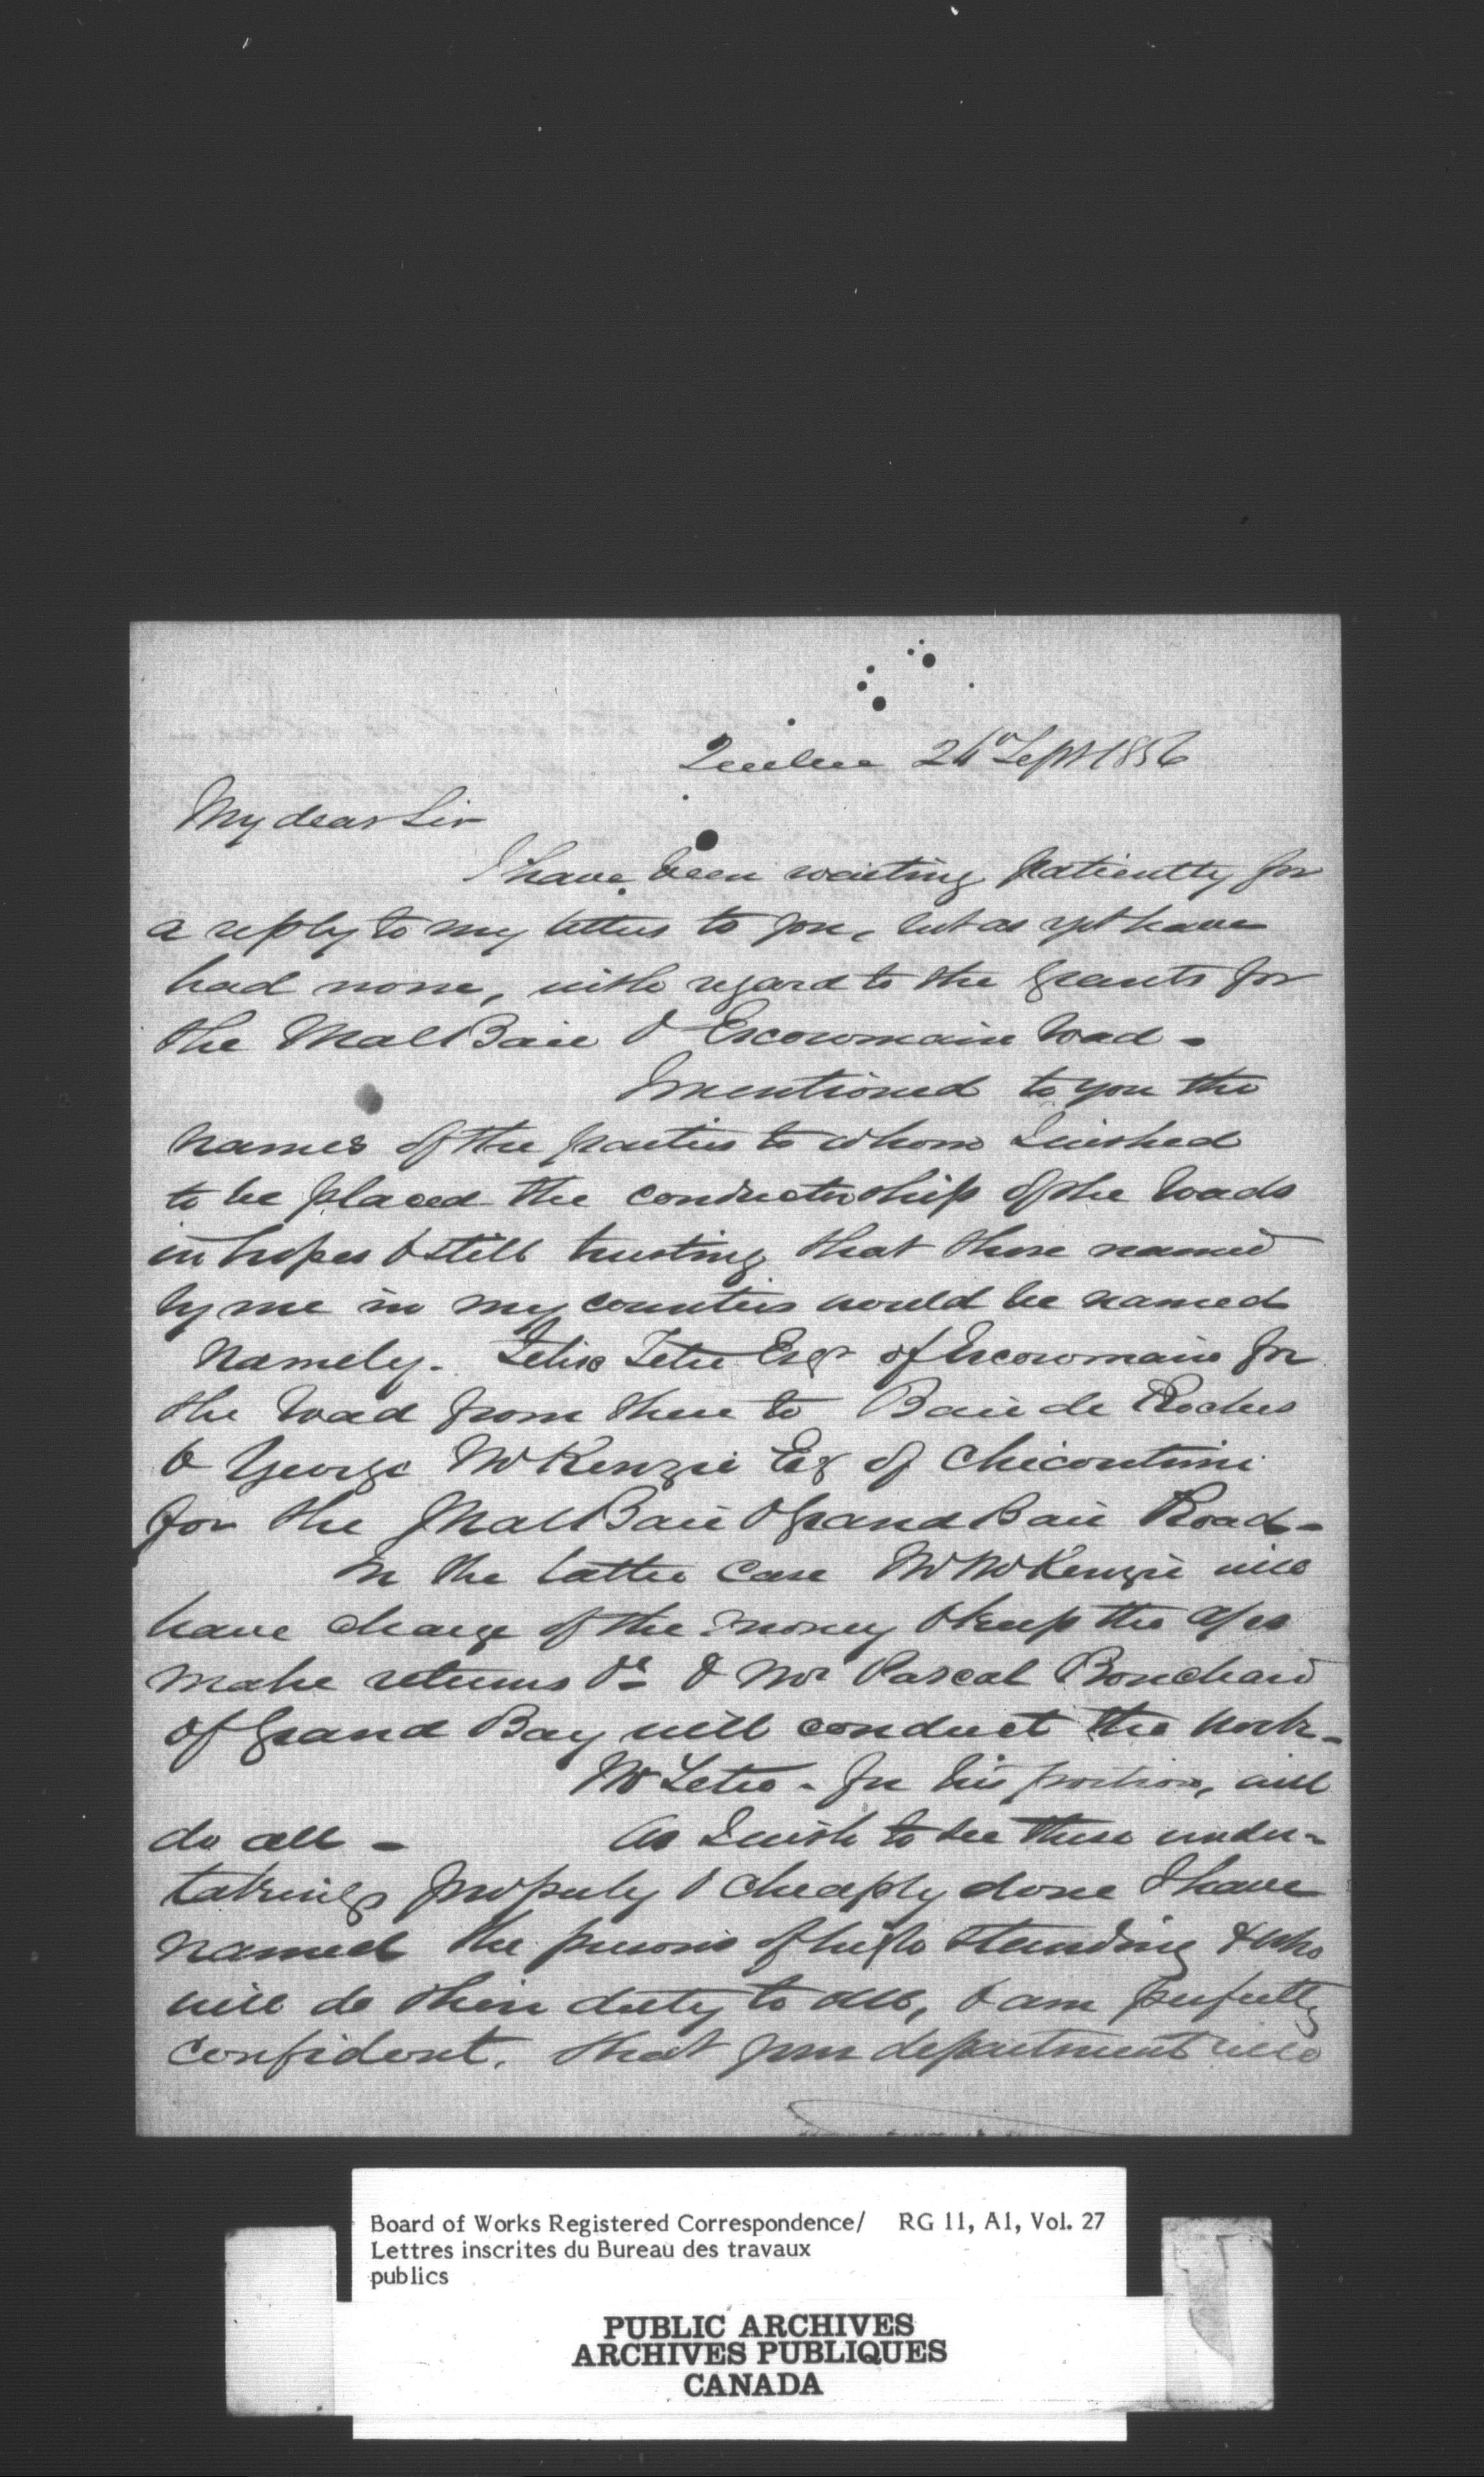 Quebec 26th Sept 1856
My dear Sir
I have been waiting patiently for
a reply to my letters to you, but as yet have
had none, with regard to the grants for
the Mal Baie & Escowmain Road -
I mentioned to you the
names of the parties to whom I wished
to be placed the conductorship of the Roads
in hopes & still trusting that those named
by me in my counties would be named
Namely. Felix Tetu Esqr of Escowmain for
the Road from there to Baie de Roches
& George McKenzie Esq of Chicoutimi
for the Mal Baie & Grand Baie Road -
In the latter case Mr McKenzie will
have charge of the money & keep the a/cs
make returns &c & Mr Pascal Bouchard
of Grand Bay will conduct the work -
Mr Tetu - for his portion, will
do all - As I wish to see these under-
takings properly & cheaply done I have
named the persons of high standing & who
will do their duty to all, & am perfectly
confident, that your department will
Board of Works Registered Correspondence/ RG 11, A1, Vol. 27
Lettres inscrites du Bureau des travaux
publics
PUBLIC ARCHIVES
ARCHIVES PUBLIQUES
CANADA